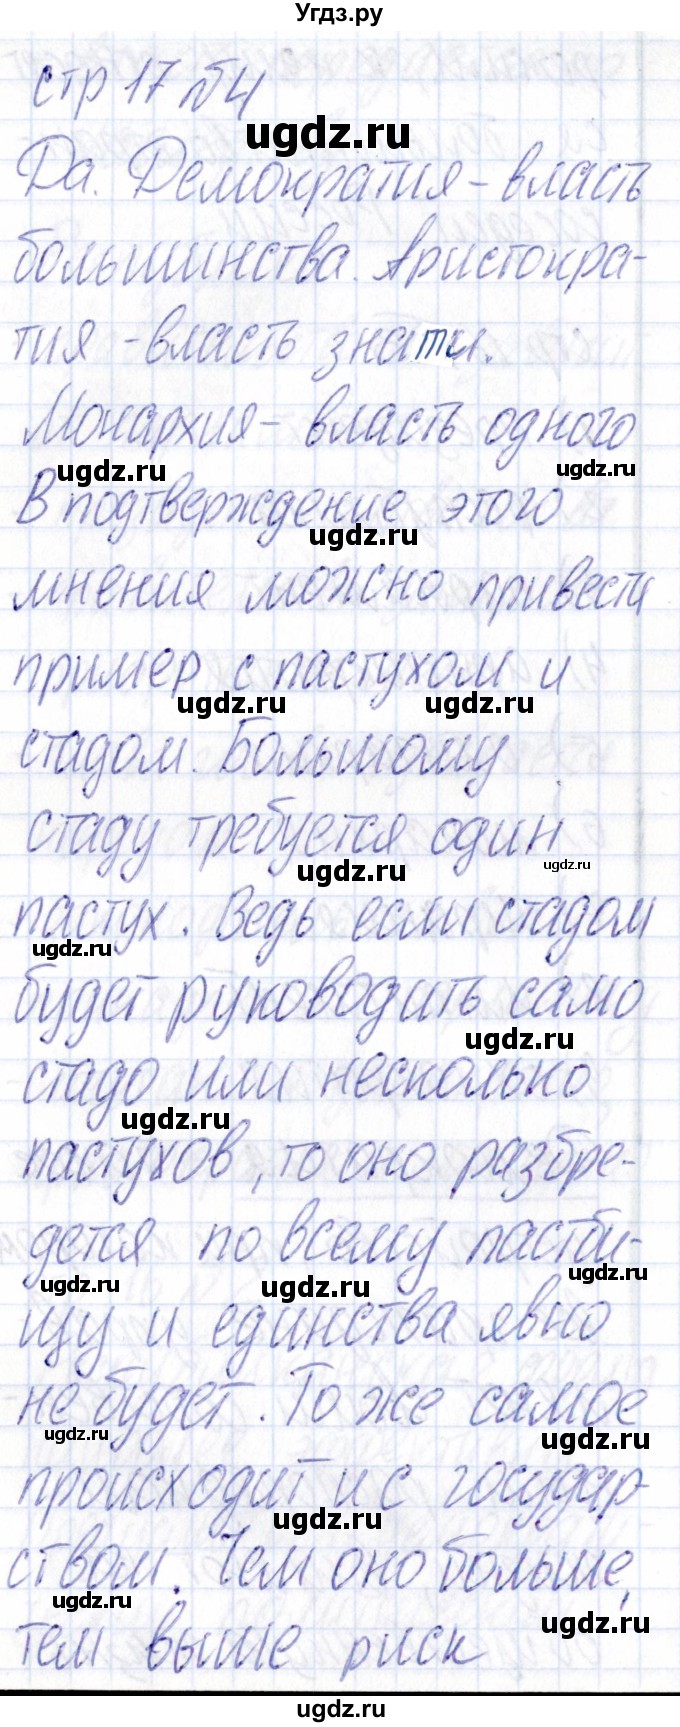 Угдз.ру
стр 17 №4
ugdz.ru
Да. Демократия - власть
большинства. Аристокра-
тия - власть знати.
Монархия - власть одного
ugdz.ru
ugdz.ru
В подтверждение этого
ugdz.ru
мнения можно привести
пример с пастухом и
ugdz.ru
ugdz.ru
стадом. Большому
стаду требуется один
ugdz.ru
ugdz.ru
пастух. Ведь если стадом
ugdz.ru
будет руководить само
ugdz.ru
стадо или несколько
ugdz.ru
пастухов, то оно разбре-
дется по всему пастби-
ugdz.ru
ugdz.ru
ugdz.ru
щу и единства явно
не будет. То же самое
ugdz.ru
ugdz.ru
происходит и с государ-
ugdz.ru
ством. Чем оно больше,
ugdz.ru
ugdz.ru
тем выше риск
ugdz.ru